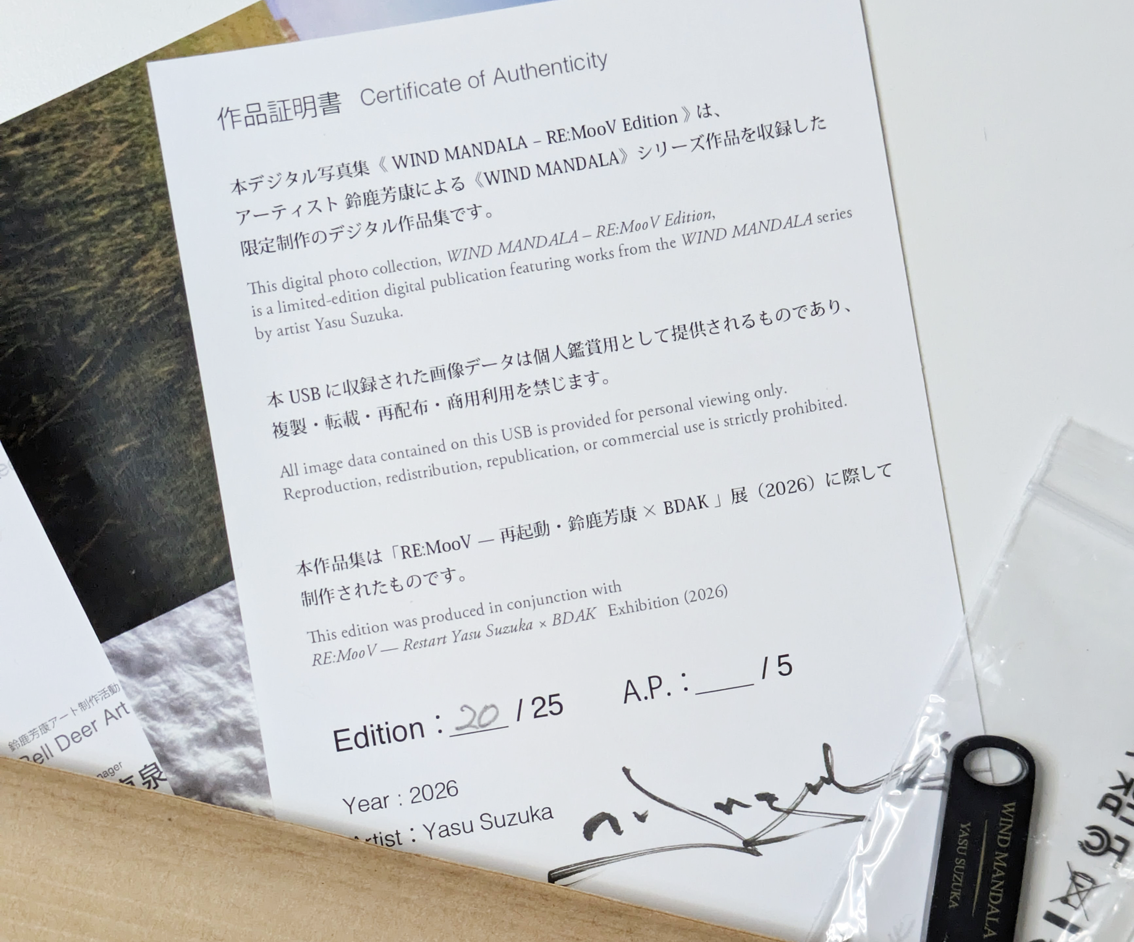 作品証明書 Certificate of Authenticity
本デジタル写真集《 WIND MANDALA – RE:MooV Edition 》は、
アーティスト 鈴鹿芳康による《WIND MANDALA》シリーズ作品を収録した
限定制作のデジタル作品集です。
This digital photo collection, WIND MANDALA – RE:MooV Edition,
is a limited-edition digital publication featuring works from the WIND MANDALA series
by artist Yasu Suzuka.
本 USB に収録された画像データは個人鑑賞用として提供されるものであり、
複製・転載・再配布・商用利用を禁じます。
All image data contained on this USB is provided for personal viewing only.
Reproduction, redistribution, republication, or commercial use is strictly prohibited.
本作品集は「RE:MooV — 再起動・鈴鹿芳康 × BDAK 」展（2026）に際して
制作されたものです。
This edition was produced in conjunction with
RE:MooV — Restart Yasu Suzuka × BDAK Exhibition (2026)
Edition : 20 / 25 A.P. : ___ / 5
Year : 2026
Artist : Yasu Suzuka
鈴鹿芳康アート制作活動
Bell Deer Art
WIND MANDALA
YASU SUZUKA